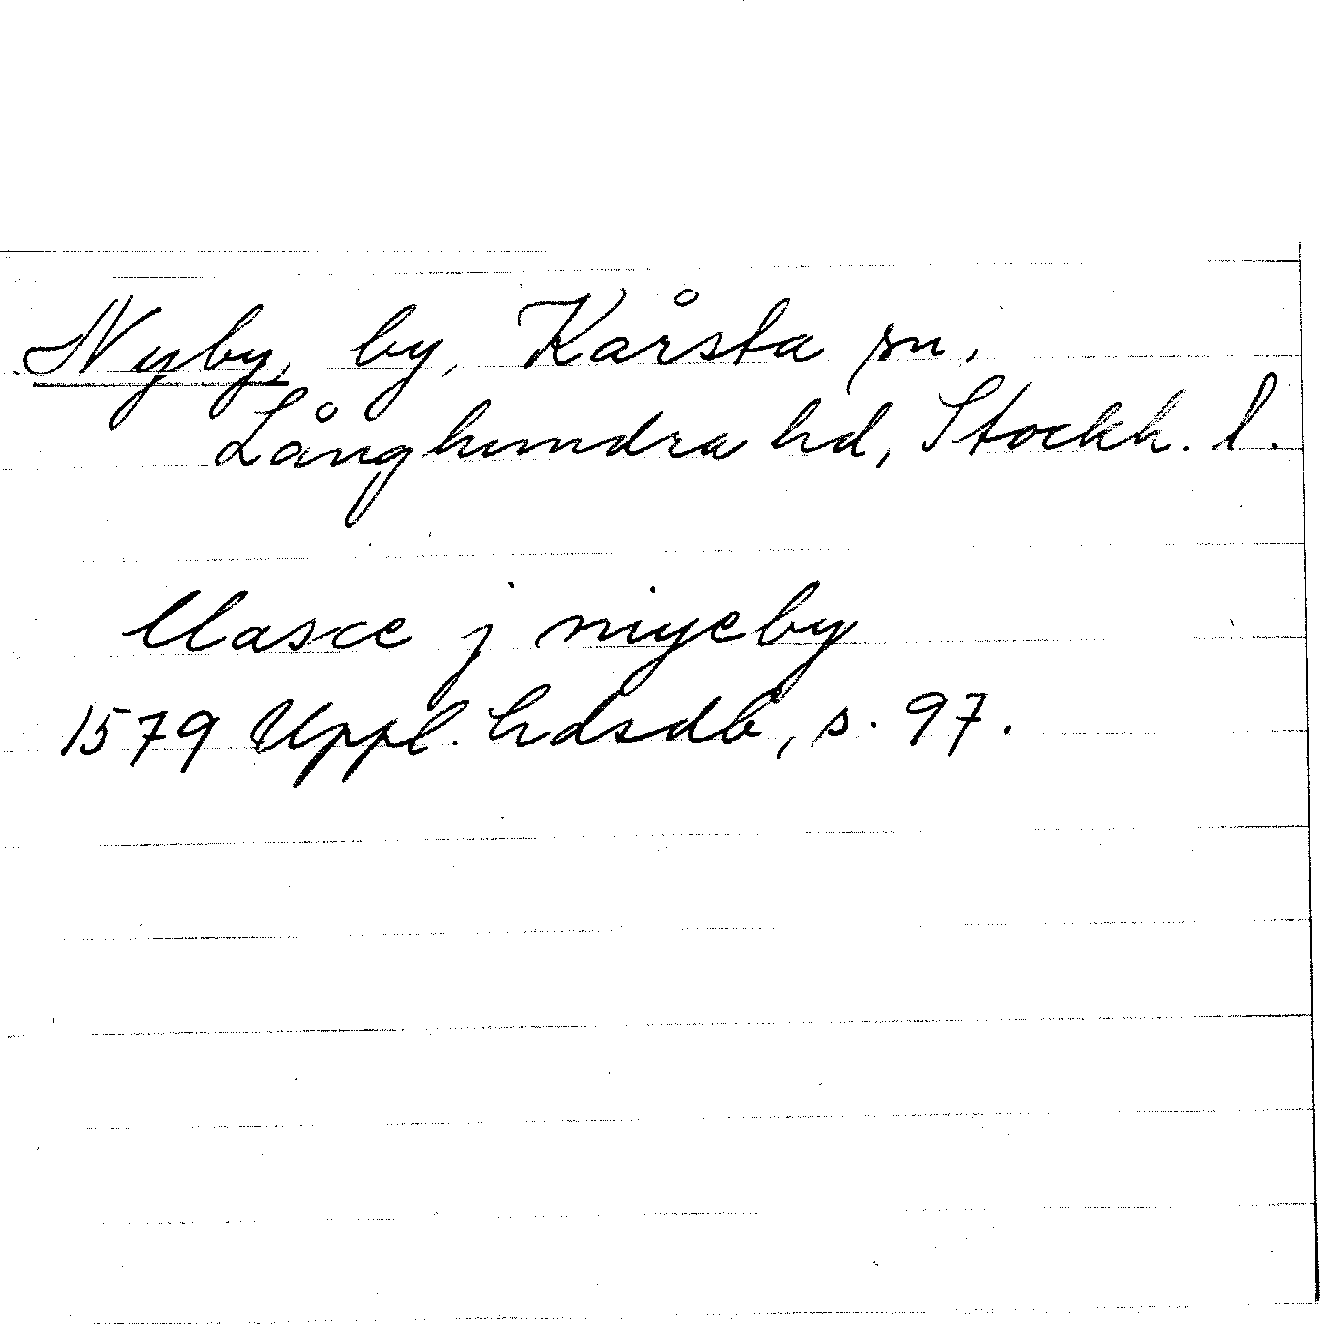 Nyby, by, Kårsta sn,
Långhundra hd, Stockh. l.
Clasce j niyeby
1579 Uppl. hdsdb, s. 97.